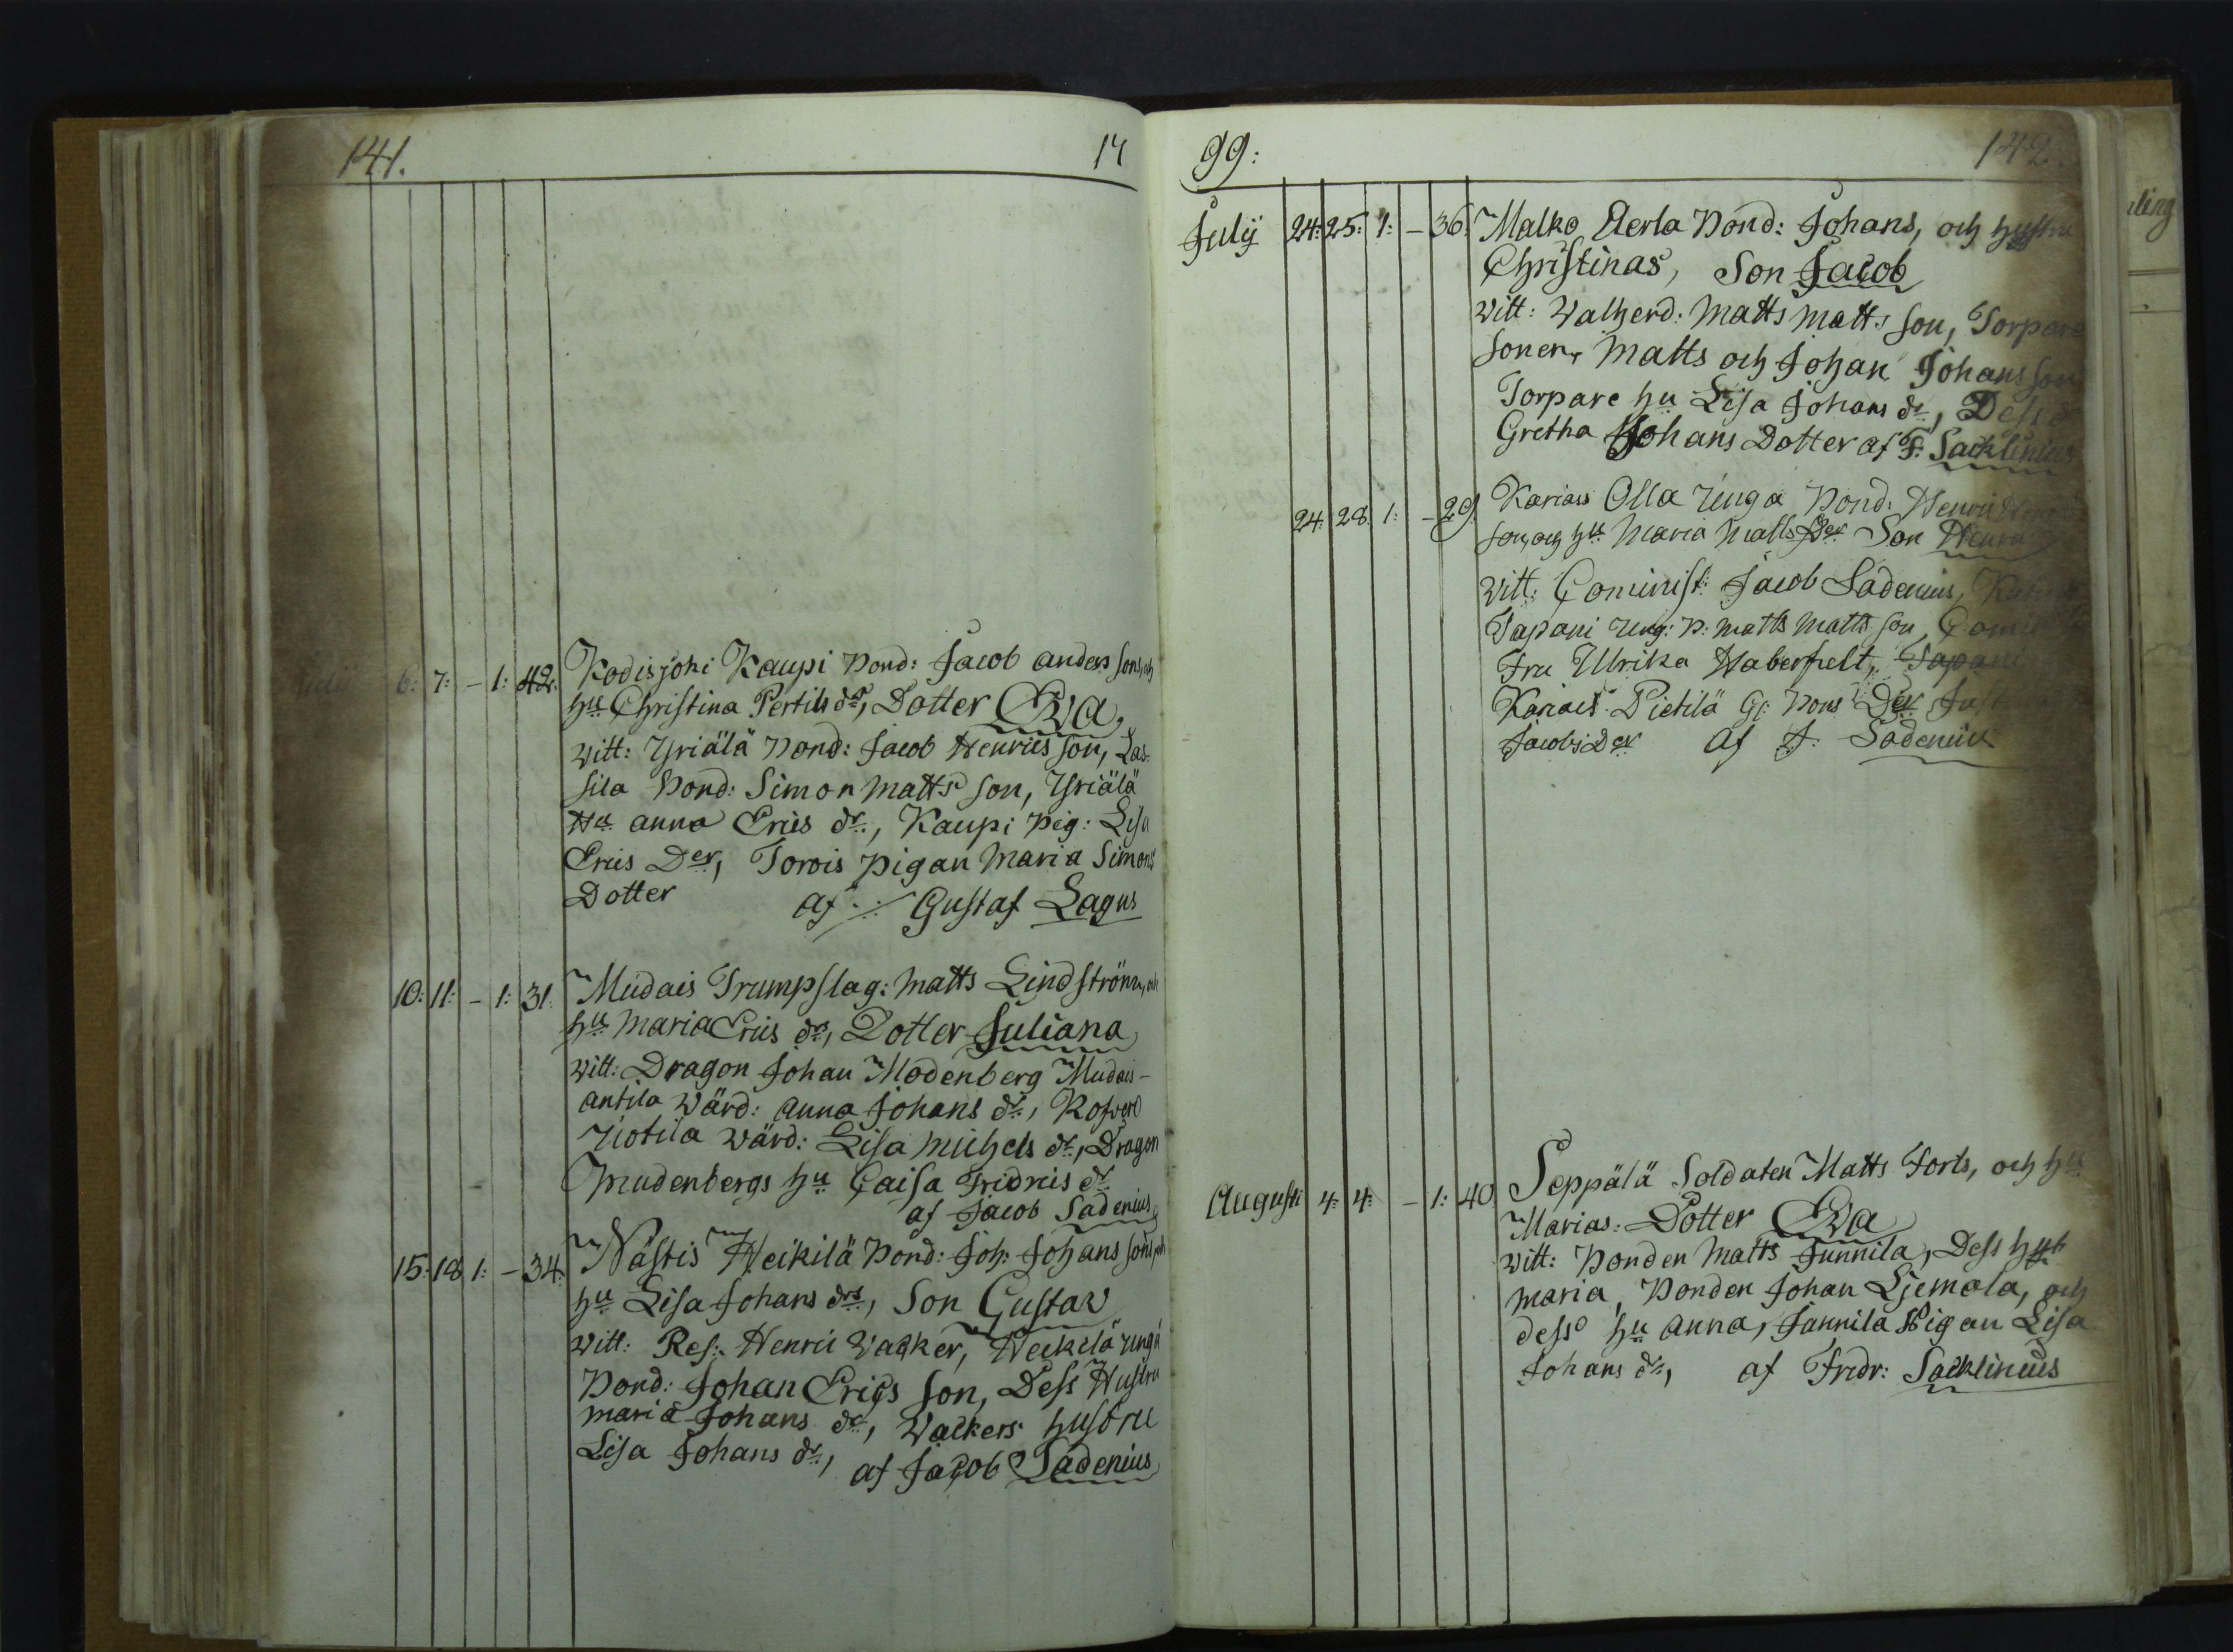 141. 17
July 6: 7: – 1: 42. Kodisjoki Kaupi Bond: Jacob anders sons, och
hu Christina Pertils dr, Dotter Eva,
witt: Yriälä Bond: Jacob Henrics son, Las-
sila Bond: Simon Matts son, Yriälä
Hu anna Erics dr, Kaupi pig: Lisa
Erics Der, Torois pigan Maria Simons
Dotter af Gustaf Lagus
10: 11: – 1: 31. Mudais Trumpslag: Matts Lindström, och
hu Maria Erics dr, Dotter Juliana
witt: Dragon Johan Modenberg Mudais-
antila wärd: anna Johans dr,
wärd: Lisa Michels dr, Dragon
Mudenbergs hu Caisa Fridrics dr
af Jacob Sadenius
15: 18 1: – 34. Nästis Heikilä Bond: Joh: Johans sons, och
hu Lisa Johans drs, Son Gustav
witt: Res: Henric Wacker, Heikilä unga
Bond: Johan Erics son, Dess Hustru
maria Johans dr, Wackers hustru
Lisa Johans dr, af Jacob Sadenius
99: 142
July 24: 25: 1: – 36. Malko Aerla Bond: Johans, och hustru
Christinas, Son Jacob
witt: Walherd: Matts Matts son, Torpare
sonen, Matts och Johan Johans son
Torpare hu Lisa Johans dr, Dess
Gretha Johans Dotter af F: Sacklinius
24: 28. 1: – 29. Kariais Olla Unga Bond: Henric
son, och hu Maria Matts Der Son Henric
witt: Cominist: Jacob Sadenius,
Tapani ung: B: Matts Matts son,
Fru Ulrika Haberfelt, Tapani
Kariais Pietilä Gl: Bons Der
Jacobs Der af J: Sadenius
Augusti 4: 4: – 1: 40. Seppälä Soldaten Matts Forts, och hu
Marias: Dotter Eva
witt: Bonden Matts Junnila, Dess hu
maria, Bonden Johan Liemola, och
dess hu anna, Junnila Pigan Lisa
Johans dr, af Fridr: Sacklinius
ling